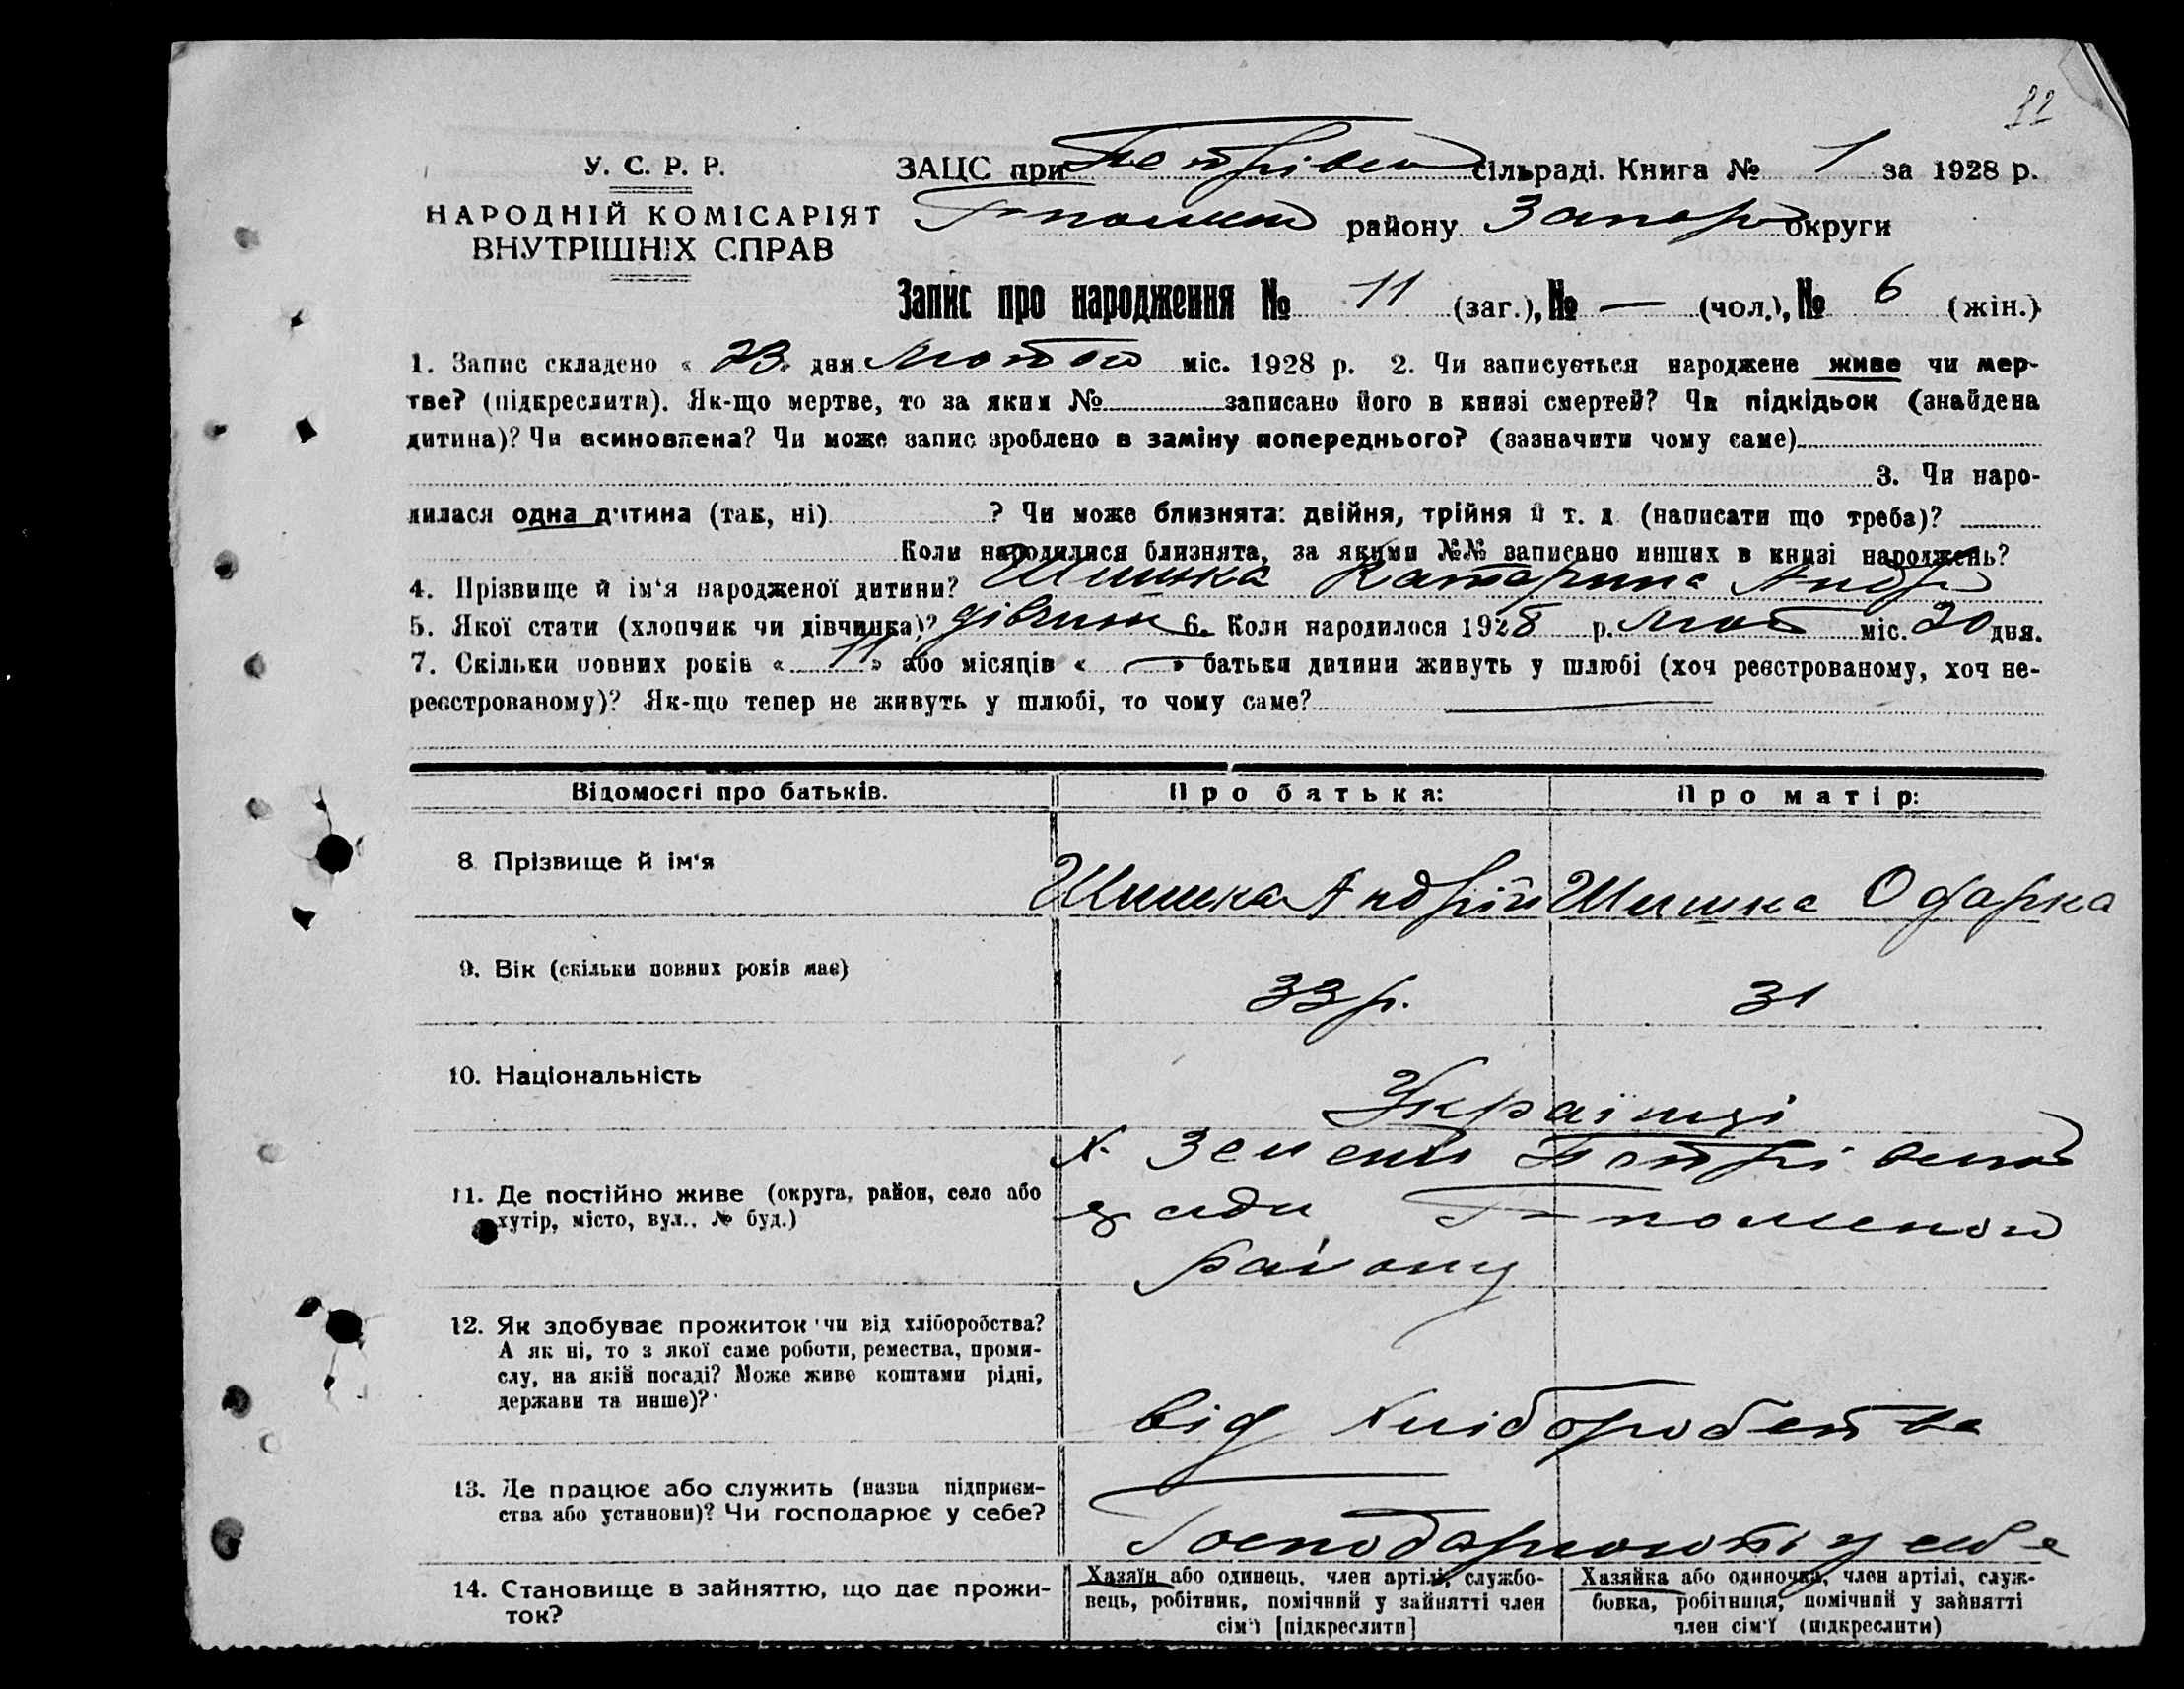 22
У. С. Р. Р.
НАРОДНІЙ КОМІСАРІЯТ
ВНУТРІШНІХ СПРАВ
ЗАЦС при Петрівськ сільраді. Книга № 1 за 1928 р.
району Запор округи
Запис про народження № 11 (заг.), № — (чол.), № 6 (жін.)
1. Запис складено « 23 » дня Лютого міс. 1928 р. 2. Чи записується народжене живе чи мер-
тве? (підкреслити). Як-що мертве, то за яким № записано його в книзі смертей? Чи підкідьок (знайдена
дитина)? Чи всиновлена? Чи може запис зроблено в заміну попереднього? (зазначити чому саме)
3. Чи наро-
дилася одна дитина (так, ні) ? Чи може близнята: двійня, трійня й т. д. (написати що треба)?
Коли народилися близнята, за якими №№ записано инших в книзі народжень?
4. Прізвище й ім'я народженої дитини? Шишка Катарина Андр
5. Якої стати (хлопчик чи дівчинка)? дівчин 6. Коли народилося 1928 р. Лют міс. 20 дня.
7. Скільки повних років « 11 » або місяців « — » батьки дитини живуть у шлюбі (хоч реєстрованому, хоч не-
реєстрованому)? Як-що тепер не живуть у шлюбі, то чому саме? —
Відомості про батьків. Про батька: Про матір:
8 Прізвище й ім'я Шишка Андрій Шишка Одарка
9. Вік (скільки повних років має) 33 р. 31
10. Національність Українці
11. Де постійно живе (округа, район, село або
хутір, місто, вул., № буд.)
х. Петрівської
с/ради
району
12. Як здобуває прожиток чи від хліборобства?
А як ні, то з якої саме роботи, ремества, проми-
слу, на якій посаді? Може живе коштами рідні,
держави та инше)?
від хліборобства
13. Де працює або служить (назва підприєм-
ства або установи)? Чи господарює у себе?
Господарюють у себе
14. Становище в зайняттю, що дає прожи-
ток?
Хазяїн або одинець, член артілі, службо-
вець, робітник, помічний у зайнятті член
сім'ї [підкреслити]
Хазяйка або одиночка, член артілі, служ-
бовка, робітниця, помічний у зайнятті
член сім'ї (підкреслити)